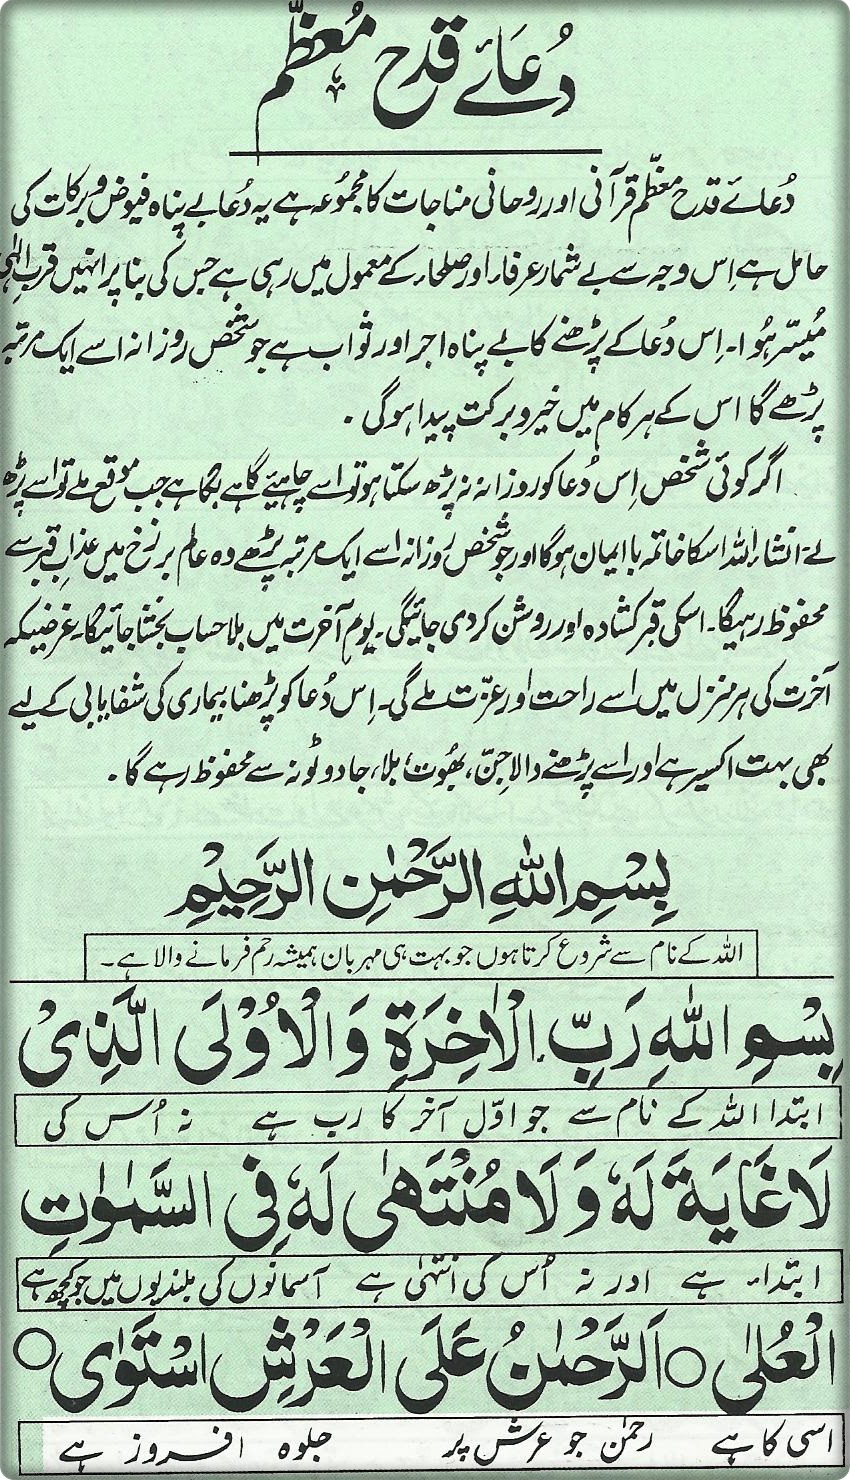 دُعائے قدح معظّم
دُعائے قدح معظّم قرآنی اور روحانی مناجات کا مجموُعہ ہے یہ دُعا بے پناہ فیوض و برکات کی
حامل ہے اِس وجہ سے بے شمار عرفاء اور صلحاء کے معمول میں رہی ہے جس کی بنا پر انہیں قربِ الٰہی
مُیسّر ہُوا۔ اِس دُعا کے پڑھنے کا بے پناہ اجر اور ثواب ہے جو شخص روزانہ اسے ایک مرتبہ
پڑھے گا اس کے ہر کام میں خیر و برکت پیدا ہو گی ۔
اگر کوئی شخص اِس دُعا کو روزانہ نہ پڑھ سکتا ہو تو اسے چاہیئے گاہے بگاہے جب موقع ملے تو اسے پڑھ
لے۔ انشاء اللہ اسکا خاتمہ با ایمان ہو گا اور جو شخص روزانہ اسے ایک مرتبہ پڑھے وہ عالم برزخ میں عذابِ قبر سے
محفوظ رہیگا۔ اسکی قبر کشادہ اور روشن کر دی جائیگی۔ یومِ آخرت میں بلا حساب بخشا جائیگا۔ غرضیکہ
آخرت کی ہر منزل میں اسے راحت اور عزّت ملے گی۔ اِس دُعا کو پڑھنا بیماری کی شفایابی کے لیے
بھی بہت اکسیر ہے اور اسے پڑھنے والا جِنّ، بھُوت، بلا، جادو ٹونہ سے محفوظ رہے گا ۔
بِسْمِ اللّٰهِ الرَّحْمٰنِ الرَّحِیْمِ
اللہ کے نام سے شروع کرتا ہوں جو بہت ہی مہربان ہمیشہ رحم فرمانے والا ہے۔
بِسْمِ اللّٰهِ رَبِّ الْاٰخِرَةِ وَالْاُوْلَی الَّذِیْ
ابتدا اللہ کے نام سے جو اوّل آخر کا رب ہے نہ اُس کی
لَا غَایَةَ لَهٗ وَلَا مُنْتَهٰی لَهٗ فِی السَّمٰوٰتِ
ابتداء ہے اور نہ اُس کی انتہیٰ ہے آسمانوں کی بلندیوں میں جو کچھ ہے
الْعُلٰی ○ اَلرَّحْمٰنُ عَلَی الْعَرْشِ اسْتَوٰی ○
اسی کا ہے رحمٰن جو عرش پر جلوہ افروز ہے